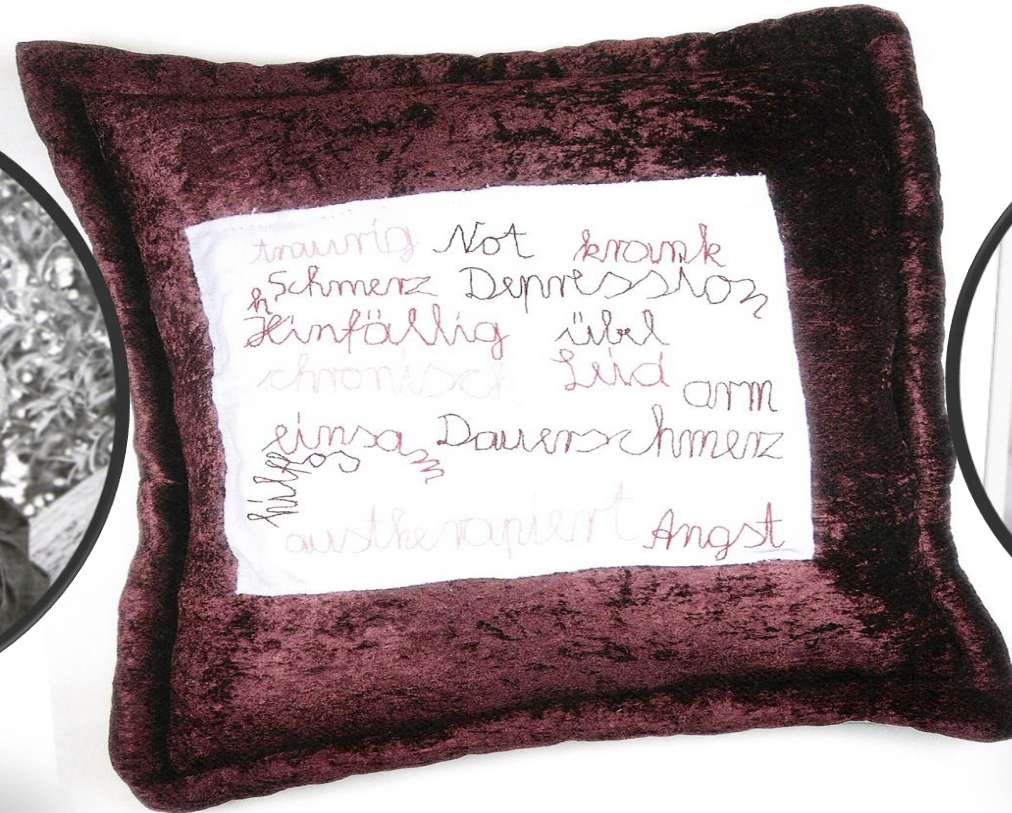 traurig Not krank
Schmerz Depression
h
Hinfällig übel
chronisch Leid
arm
einsam Dauerschmerz
hilflos
austherapiert Angst